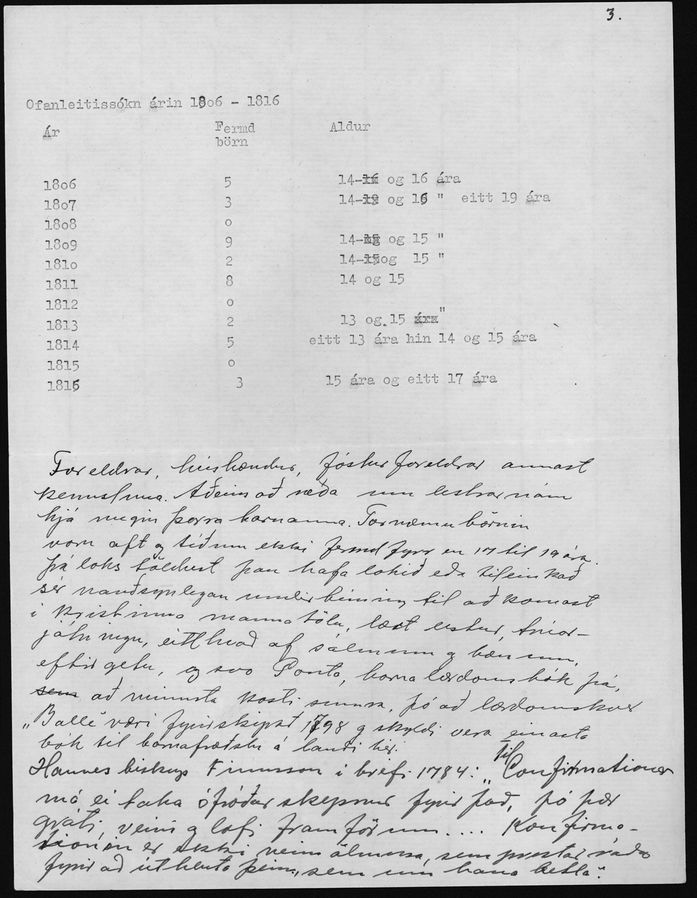 3.
Ofanleitissókn árin 18o6 - 1816
Ár Fermd Aldur
börn
18o6 5 14-16 og 16 ára
18o7 3 14-19 og 16 " eitt 19 ára
18o8 o
18o9 9 14- og 15 "
181o 2 14-15og 15 "
1811 8 14 og 15
1812 o
1813 2 13 og 15 ára "
1814 5 eitt 13 ára hin 14 og 15 ára
1815 o
1816 3 15 ára og eitt 17 ára
Foreldrar, húsbændur, fósturforeldrar annast
kennsluna. Aðeins að ræða um lestrarnám
hjá megin þorra barnanna. Tornæmu börnin
voru oft og tíðum ekki fermd fyrr en 17 til 19 ára.
Þá loks töldust þau hafa lokið eða tileinkað
sér nauðsynlegan undirbúning til að komast
í kristinna manna tölu, lært lestur, trúar-
játninguna, eitthvað af sálmum og bænum,
eftir getu, og svo Ponta, barnalærdomsbók þá,
sem að minnsta kosti sumra, þó að lærdomskver
"Balle" væri fyrirskipað 1798 og skyldi vera einasta
bók til barnafræðslu á landi hér.
Hannes biskup Finnsson í bréfi 1784: "Til Confirmationer
má ei taka ófróðar skepnur fyrir það, þó þær
gráti, veini og lofi framförum.... Konfirma-
tionen er ekki nein ölmusa, sem prestar ráða
fyrir að úthluta þeim, sem um hana betla".